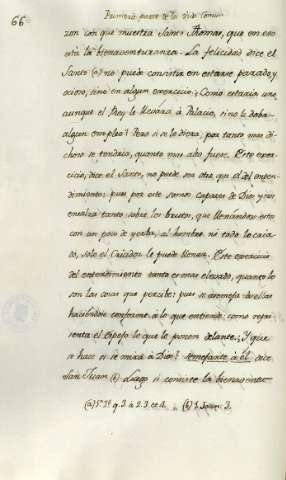 66
Primera parte de la vida comun
zon con que muestra Santo Thomas, que en eso
está la bienaventuranza. La felicidad dice el
Santo (a) no puede consistir en estarse parado, y
ocioso, sino en algun exercicio. ¿Como estaria uno,
aunque el Rey le llevara à Palacio, si no le daba
algun empleo? Pero si se lo diera, por tanto mas di-
choso se tendria, quanto mas alto fuese. Este exer-
cicio, dice el Santo, no puede ser otro que el del enten-
dimiento: pues por este somos capaces de Dios y nos
ensalza tanto sobre los brutos, que llenandose estos
con un poco de yerba, al hombre ni todo lo cria-
do, solo el Criador le puede llenar. Este exercicio
del entendimiento tanto es mas elevado, quanto lo
son las cosas que percibe: pues se asemeja à ellas
haciendose conforme à lo que entiende: como repre-
senta el espejo lo que le ponen delante. ¿Y que
se hace si se mira à Dios? semejante à èl dice
San Juan (b) Luego si consiste la bienaven-
(a) 1ª 2ª q. 3. à 2. 3. et 4. (b) 1. Joan. 3.